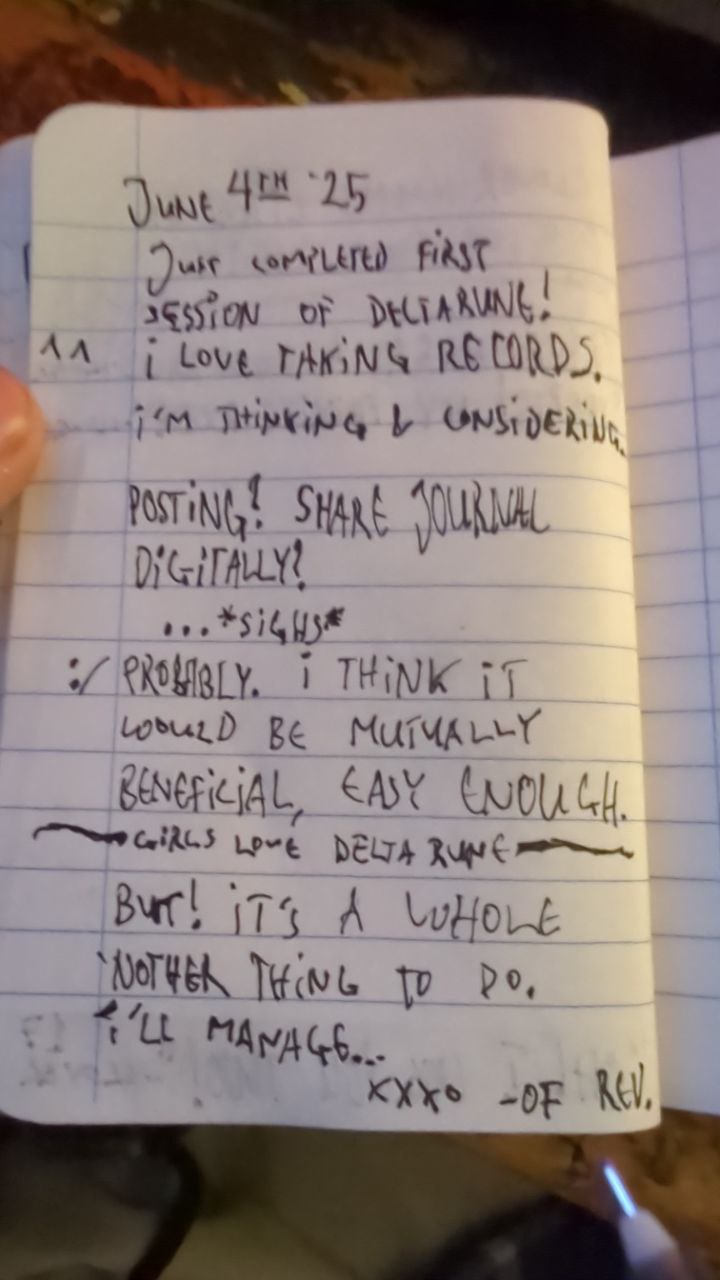 JUNE 4TH '25
JUST COMPLETED FIRST
SESSION OF DELTARUNE!
^^ i LOVE TAKING RECORDS.
i'M THINKING & CONSIDERING.
POSTING? SHARE JOURNAL
DIGITALLY?
...*SIGHS*
:/ PROBABLY. i THINK IT
WOULD BE MUTUALLY
BENEFICIAL, EASY ENOUGH.
GIRLS LOVE DELTARUNE
BUT! IT'S A WHOLE
'NOTHER THING TO DO.
i'LL MANAGE...
xxxo -OF REV.